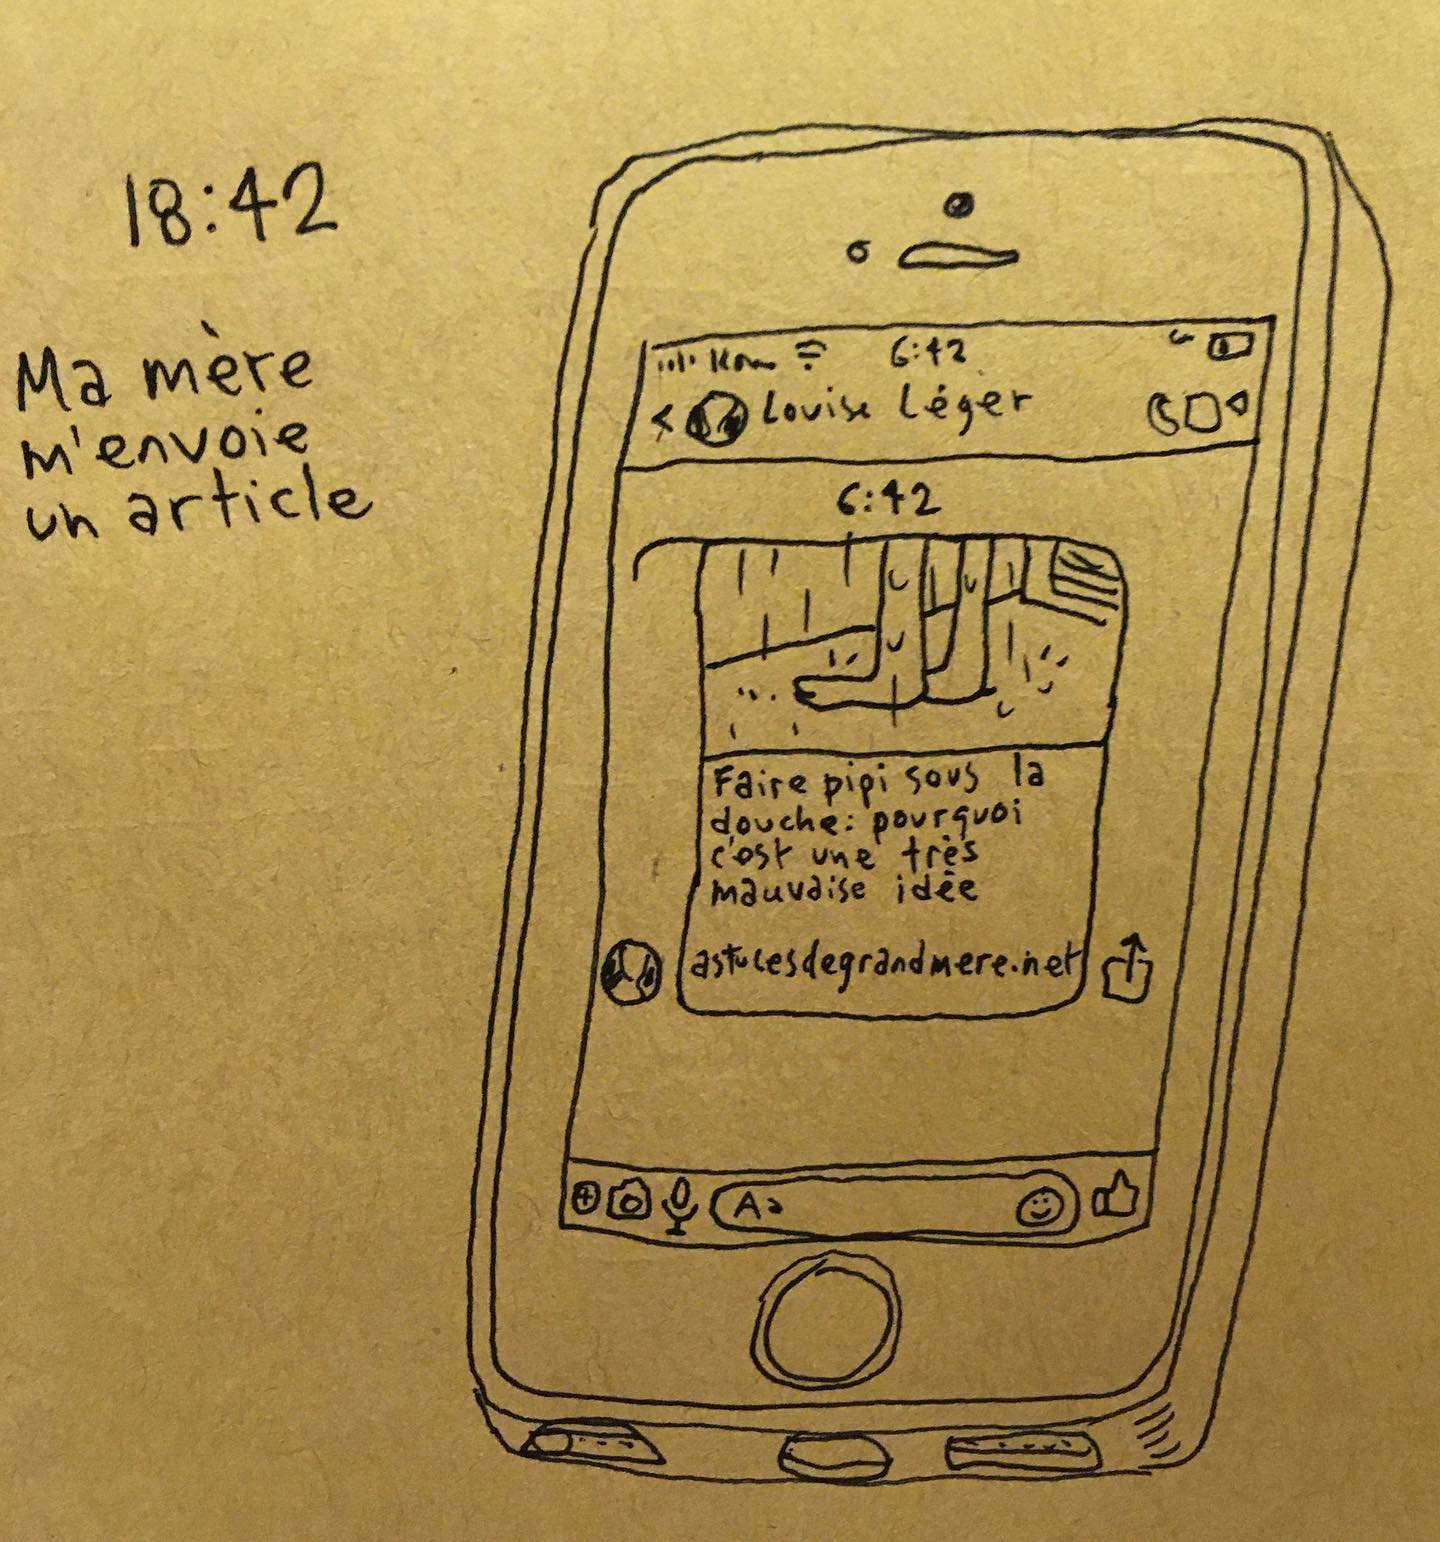 18:42
Ma mère
m'envoie
un article
6:42
Louise Léger
6:42
Faire pipi sous la
douche: pourquoi
c'est une très
mauvaise idée
astucesdegrandmere.net
Aa